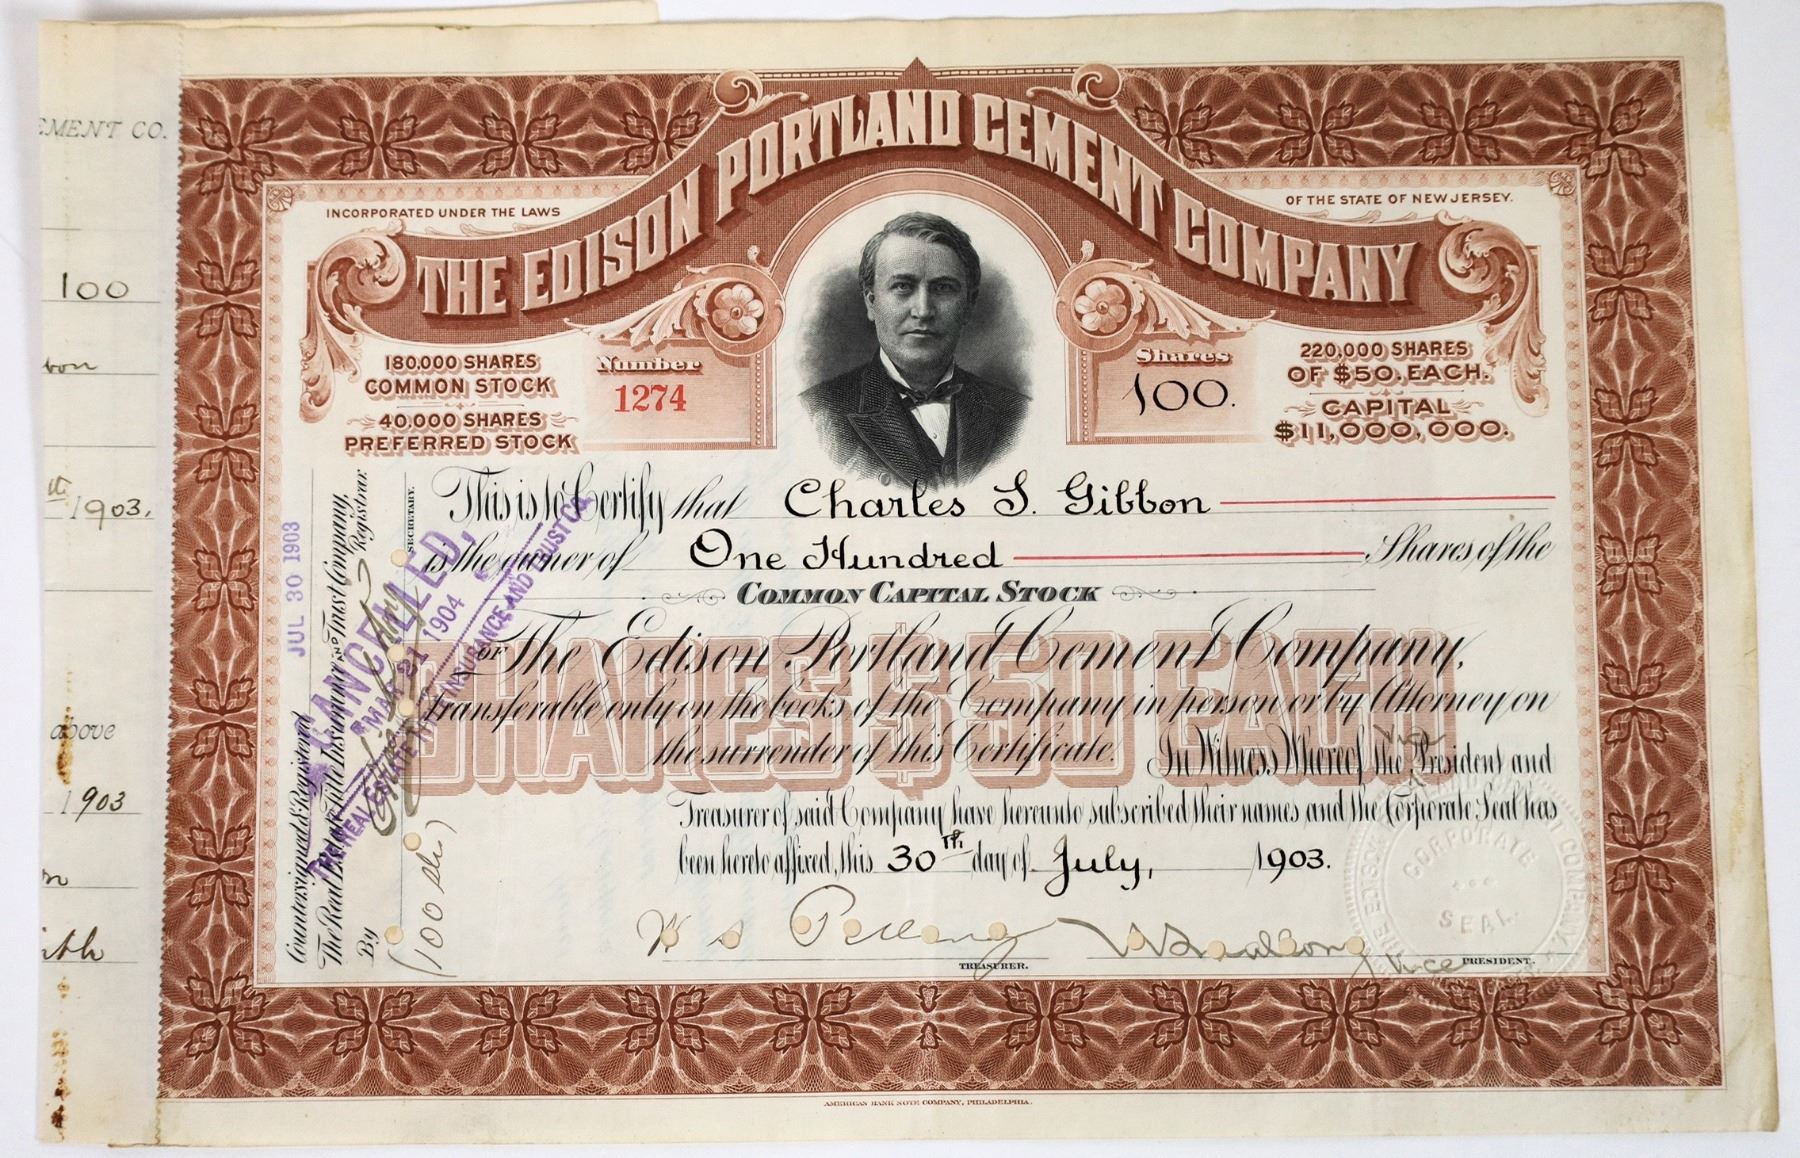 EMENT CO.
100
bon
th 1903.
above
1903
THE EDISON PORTLAND CEMENT COMPANY
INCORPORATED UNDER THE LAWS
OF THE STATE OF NEW JERSEY.
180,000 SHARES
COMMON STOCK
40,000 SHARES
PREFERRED STOCK
Number
1274
Shares
100.
220,000 SHARES
OF $50. EACH.
CAPITAL
$11,000,000.
This is to Certify that Charles S. Gibbon
is the owner of One Hundred Shares of the
COMMON CAPITAL STOCK
OF The Edison Portland Cement Company,
SHARES $50 EACH
Transferable only on the books of the Company in person or by Attorney on
the surrender of this Certificate. In Witness Whereof the Vice President and
Treasurer of said Company have hereunto subscribed their names and the Corporate Seal has
been hereto affixed, this 30th day of July, 1903.
TREASURER.
Vice PRESIDENT.
CORPORATE
SEAL
JUL 30 1903
Countersigned & Registered
The Real Estate Title Insurance and Trust Company,
Registrar.
By
SECRETARY.
(100 shs)
CANCELLED,
MAR 21 1904
THE REAL ESTATE TITLE INSURANCE AND TRUST CO.
AMERICAN BANK NOTE COMPANY, PHILADELPHIA.